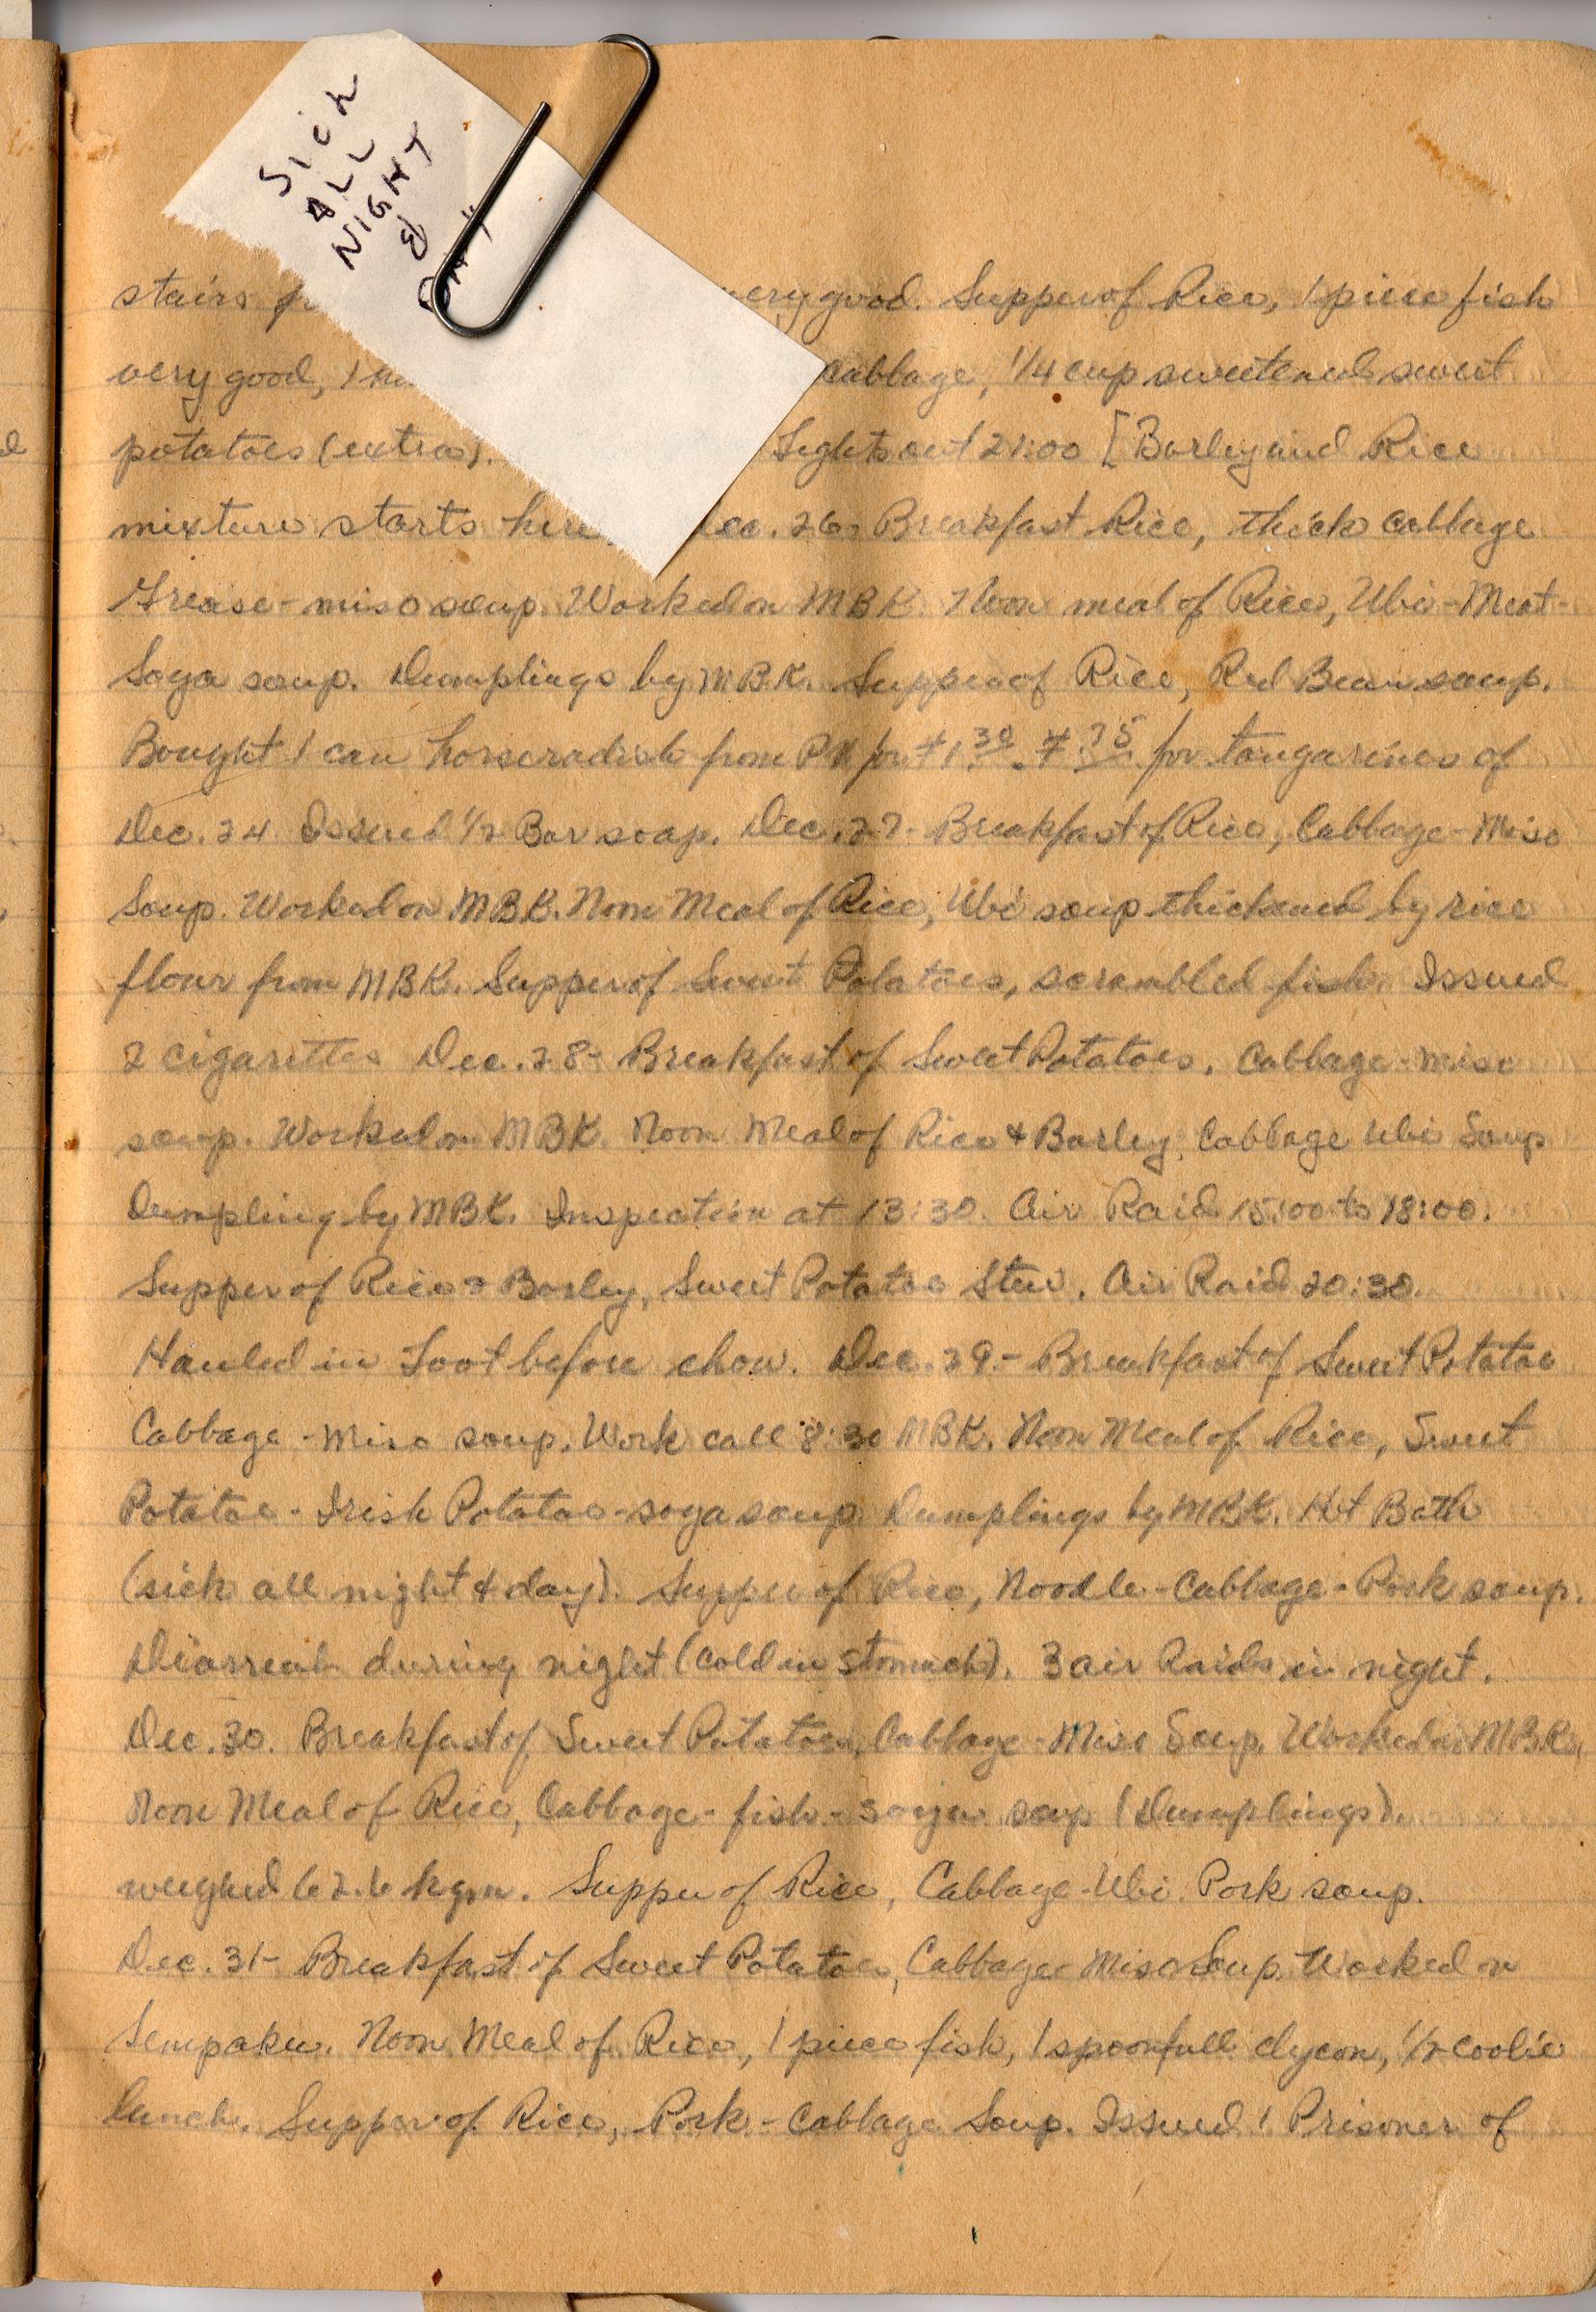 Sick
ALL
NIGHT
&
DAY
stairs very good. Supper of Rice, 1 piece fish
very good, 1 cabbage, 1/4 cup sweetened sweet
potatoes (extra). Lights out 21:00 [Barley and Rice
mixture starts here Dec. 26- Breakfast Rice, thick cabbage
Grease-miso soup. Worked on MBK. Noon meal of Rice, Ubi-Meat-
Soya soup. Dumplings by MBK. Supper of Rice, Red Bean soup.
Bought 1 can horseradish from PX for ¥1.30. ¥.75 for tangarines of
Dec. 24 Issued 1/2 Bar soap. Dec. 27- Breakfast of Rice, Cabbage-Miso
Soup. Worked on MBK. Noon Meal of Rice, Ubi soup thickened by rice
flour from MBK. Supper of Sweet Potatoes, scrambled fish. Issued
2 cigarettes Dec. 28- Breakfast of Sweet Potatoes, Cabbage-miso
soup. Worked on MBK. Noon Meal of Rice & Barley, Cabbage Ubi Soup
Dumpling by MBK. Inspection at 13:30. Air Raid 15:00 to 18:00.
Supper of Rice & Barley, Sweet Potatoe Stew. Air Raid 20:30.
Hauled in Loot before chow. Dec. 29.- Breakfast of Sweet Potatoe
Cabbage-miso soup. Work call 8:30 MBK. Noon Meal of Rice, Sweet
Potatoe-Irish Potatoe-soya soup Dumplings by MBK. Hot Bath
(sick all night & day). Supper of Rice, Noodle-Cabbage-Pork soup.
Diarreah during night (cold in stomach). 3 air Raids in night.
Dec. 30. Breakfast of Sweet Potatoes, Cabbage-Miso Soup. Worked on MBK.
Noon Meal of Rice, Cabbage-fish-soya soup (Dumplings).
weighed 62.6 kgm. Supper of Rice, Cabbage-Ubi. Pork soup.
Dec. 31- Breakfast of Sweet Potatoes, Cabbage Miso Soup. Worked on
Sempaku. Noon Meal of Rice, 1 piece fish, 1 spoonfull dycon, 1/2 coolie
lunch. Supper of Rice, Pork-Cabbage Soup. Issued 1 Prisoner of